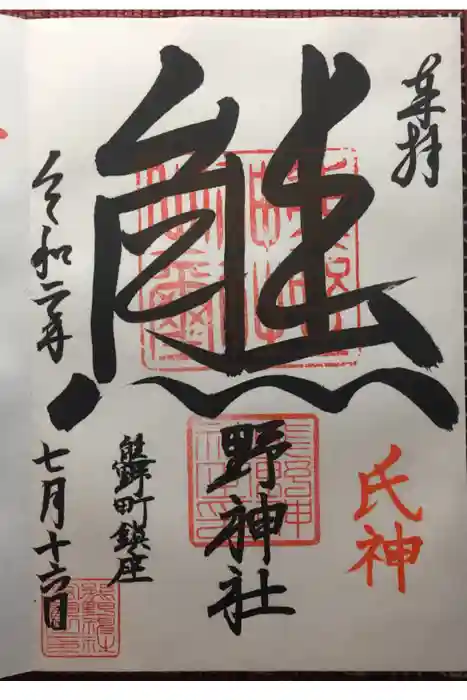 奉拝
氏神
熊
野神社
熊野町鎮座
令和二年
七月十六日